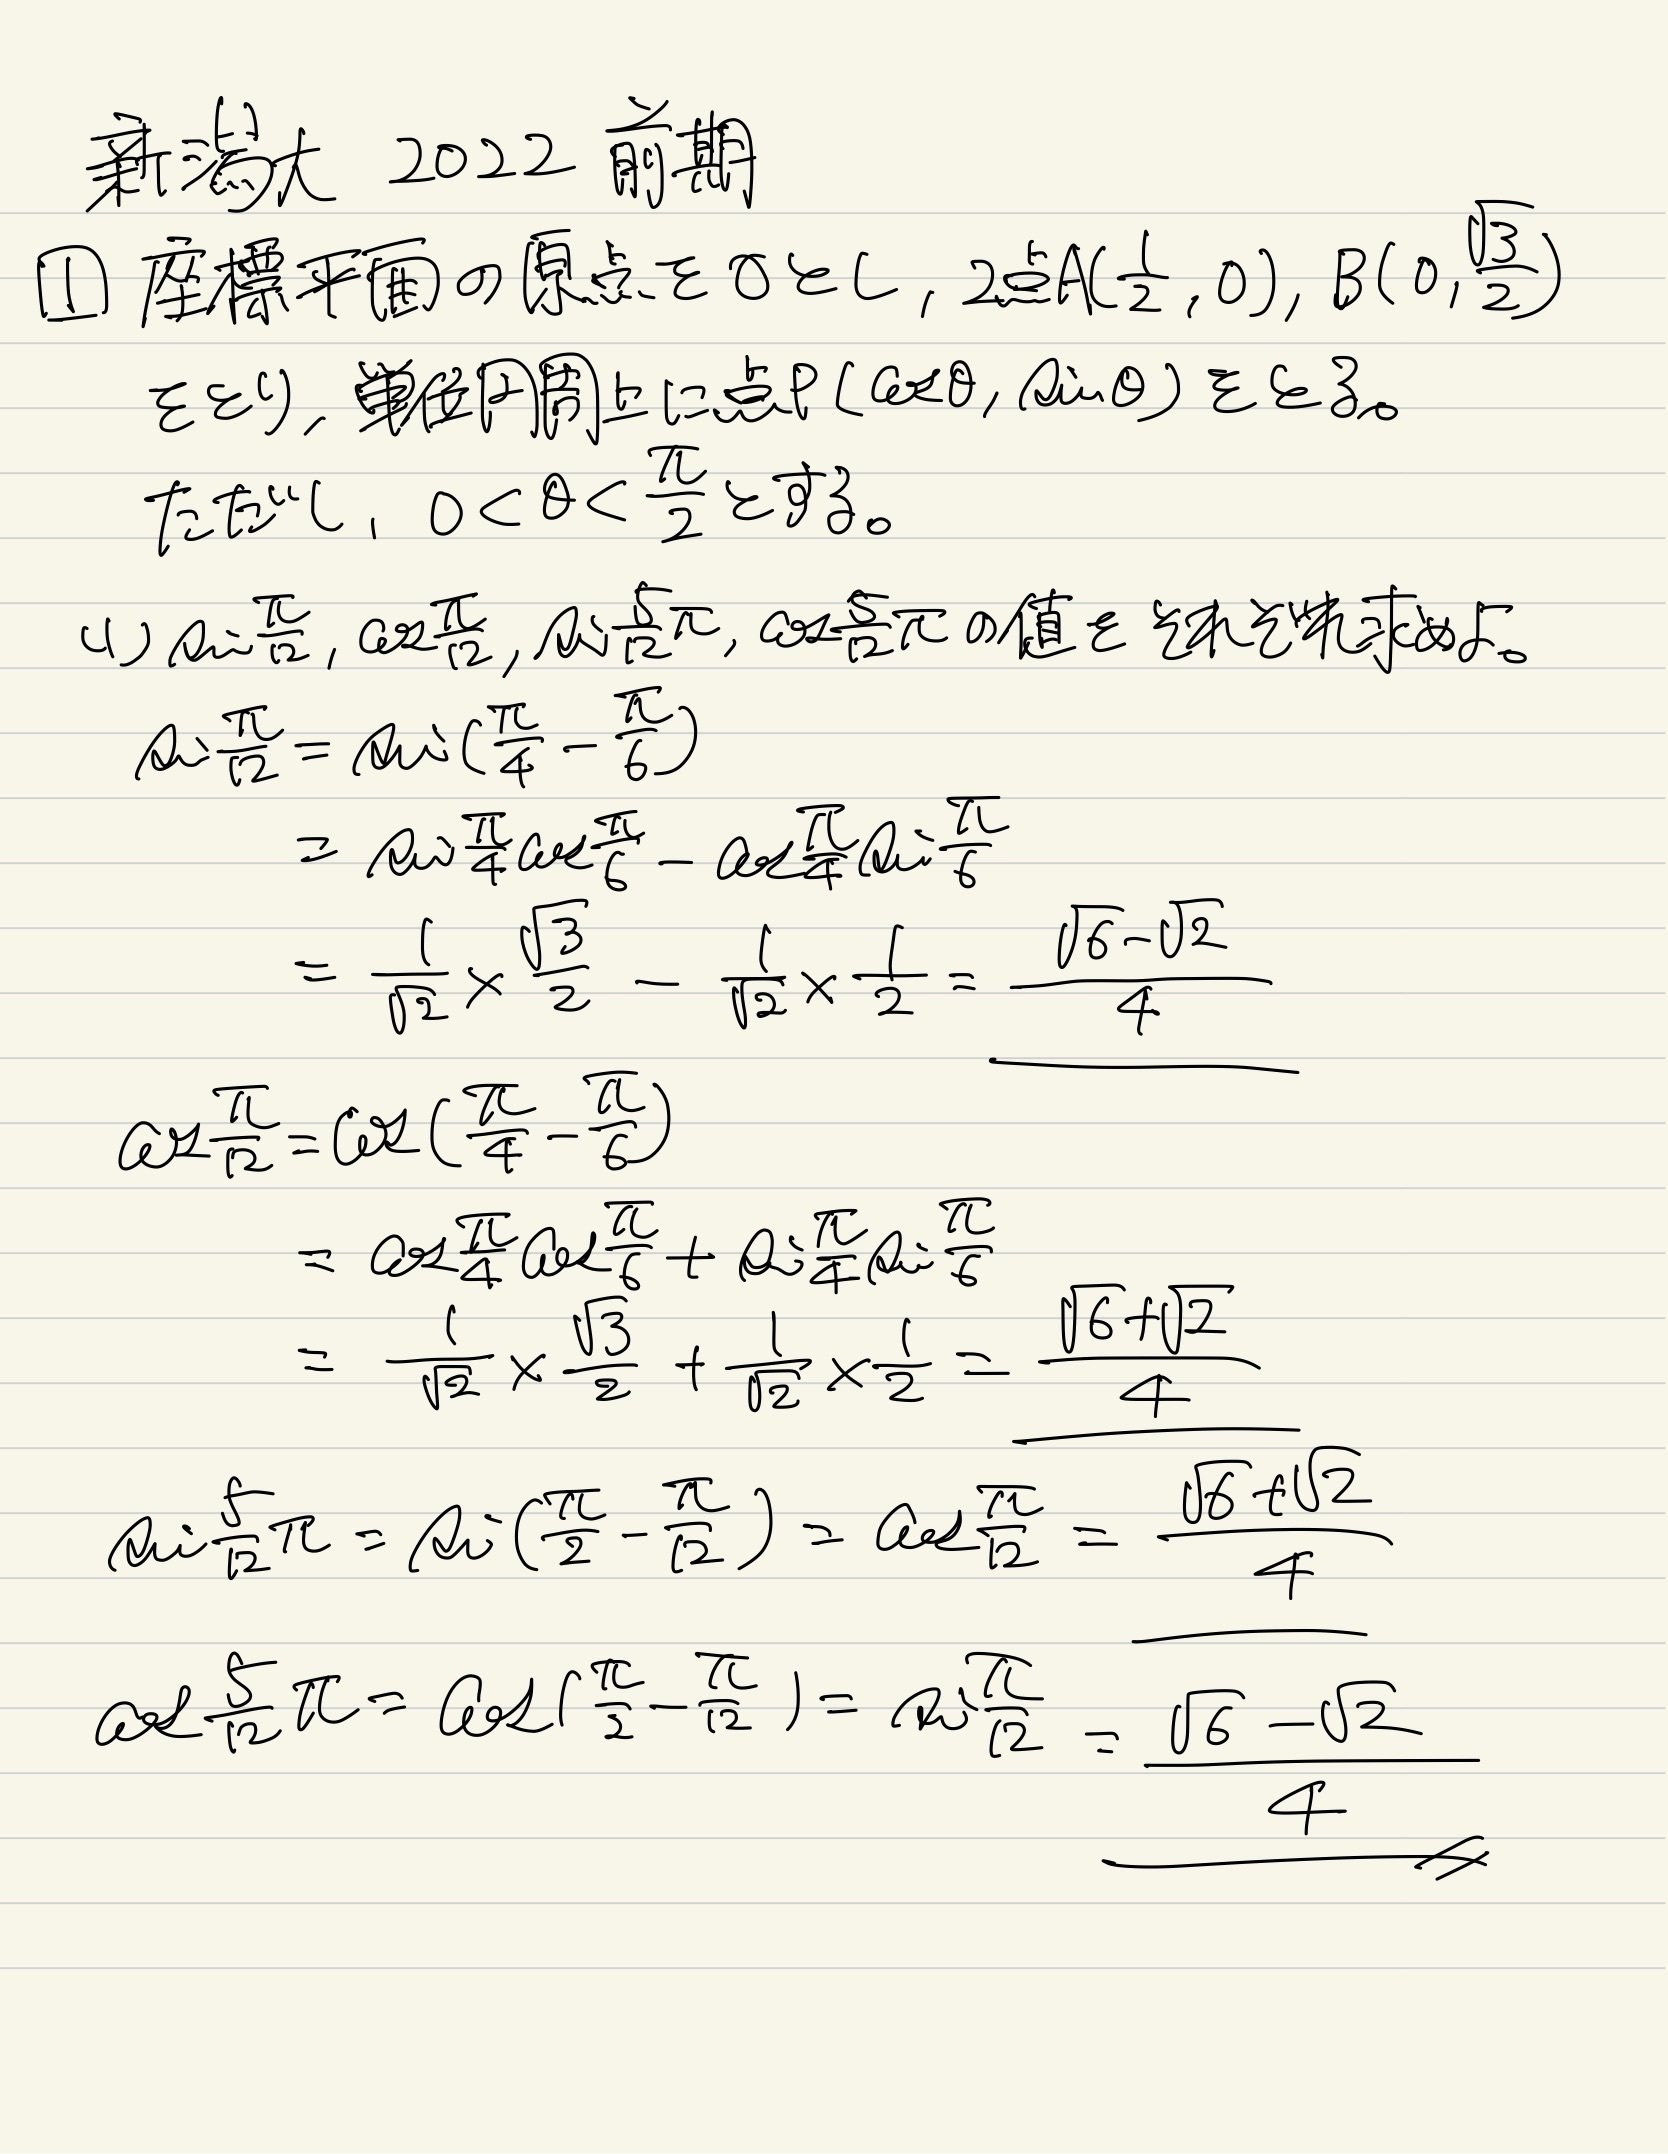 新潟大 2022 前期
1 座標平面の原点をOとし, 2点A(1/2, 0), B(0, √3/2)
をとり, 単位円周上に点P(cosθ, sinθ)をとる。
ただし, 0<θ<π/2とする。
(1) sin π/12, cos π/12, sin 5/12 π, cos 5/12 π の値をそれぞれ求めよ。
sin π/12 = sin(π/4 - π/6)
= sin π/4 cos π/6 - cos π/4 sin π/6
= 1/√2 × √3/2 - 1/√2 × 1/2 = (√6-√2)/4
cos π/12 = cos(π/4 - π/6)
= cos π/4 cos π/6 + sin π/4 sin π/6
= 1/√2 × √3/2 + 1/√2 × 1/2 = (√6+√2)/4
sin 5/12 π = sin(π/2 - π/12) = cos π/12 = (√6+√2)/4
cos 5/12 π = cos(π/2 - π/12) = sin π/12 = (√6-√2)/4